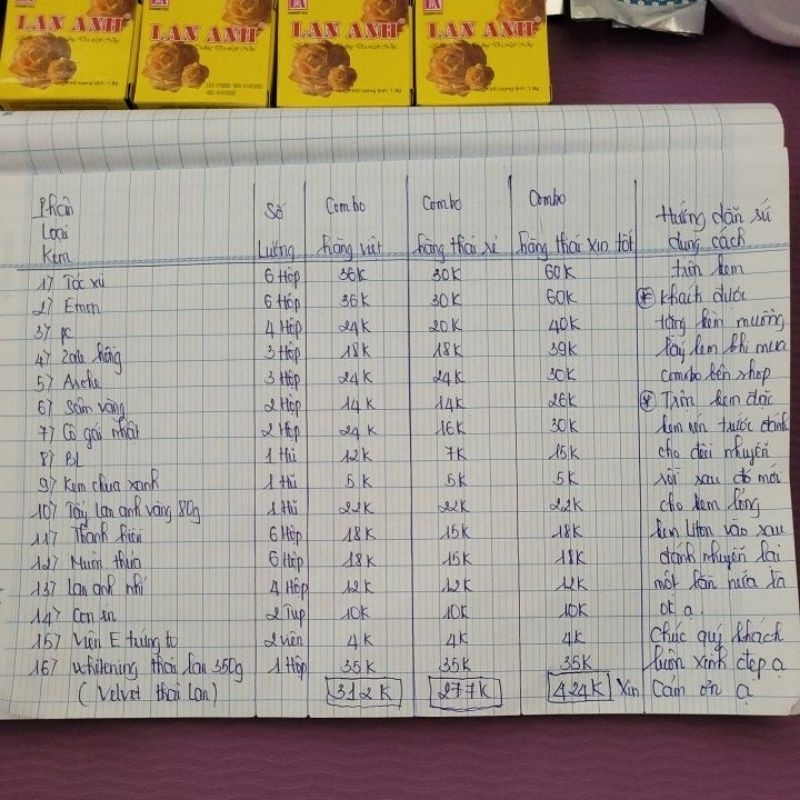 LAN ANH LAN ANH LAN ANH LAN ANH
Phân Loại Kem | Số Lượng | Combo hàng việt | Combo hàng thái rẻ | Combo hàng thái xin tốt | Hướng dẫn sử dụng cách
1) Tóc xù 6 Hộp 36K 30K 60K trộn kem
2) Emon 6 Hộp 36K 30K 60K * Khách được
3) pc 4 Hộp 24K 20K 40K tặng kèm muỗng
4) Zale hồng 3 Hộp 18K 18K 39K lấy kem khi mua
5) Arche 3 Hộp 24K 24K 30K combo bên shop
6) Sâm vàng 2 Hộp 14K 14K 26K * Trộn kem đặc
7) Cô gái nhật 2 Hộp 24K 16K 30K kem nén trước đánh
8) BL 1 Hũ 12K 7K 15K cho đều nhuyễn
9) Kem chua xanh 1 Hũ 5K 5K 5K rồi sau đó mới
10) Tẩy lan anh vàng 80g 1 Hũ 22K 22K 22K cho kem lỏng
11) Thanh hiền 6 Hộp 18K 15K 18K kem Liton vào sau
12) Mụn thừa 6 Hộp 18K 15K 18K đánh nhuyễn lại
13) Lan anh nhí 4 Hộp 12K 12K 12K một lần nữa là
14) Con én 2 Tup 10K 10K 10K ok ạ.
15) Viên E trứng to 2 viên 4K 4K 4K Chúc quý khách
16) whitening thái lan 350g 1 Hộp 35K 35K 35K luôn xinh đẹp ạ
(Velvet thái Lan) 312K 277K 424K Xin Cám ơn ạ